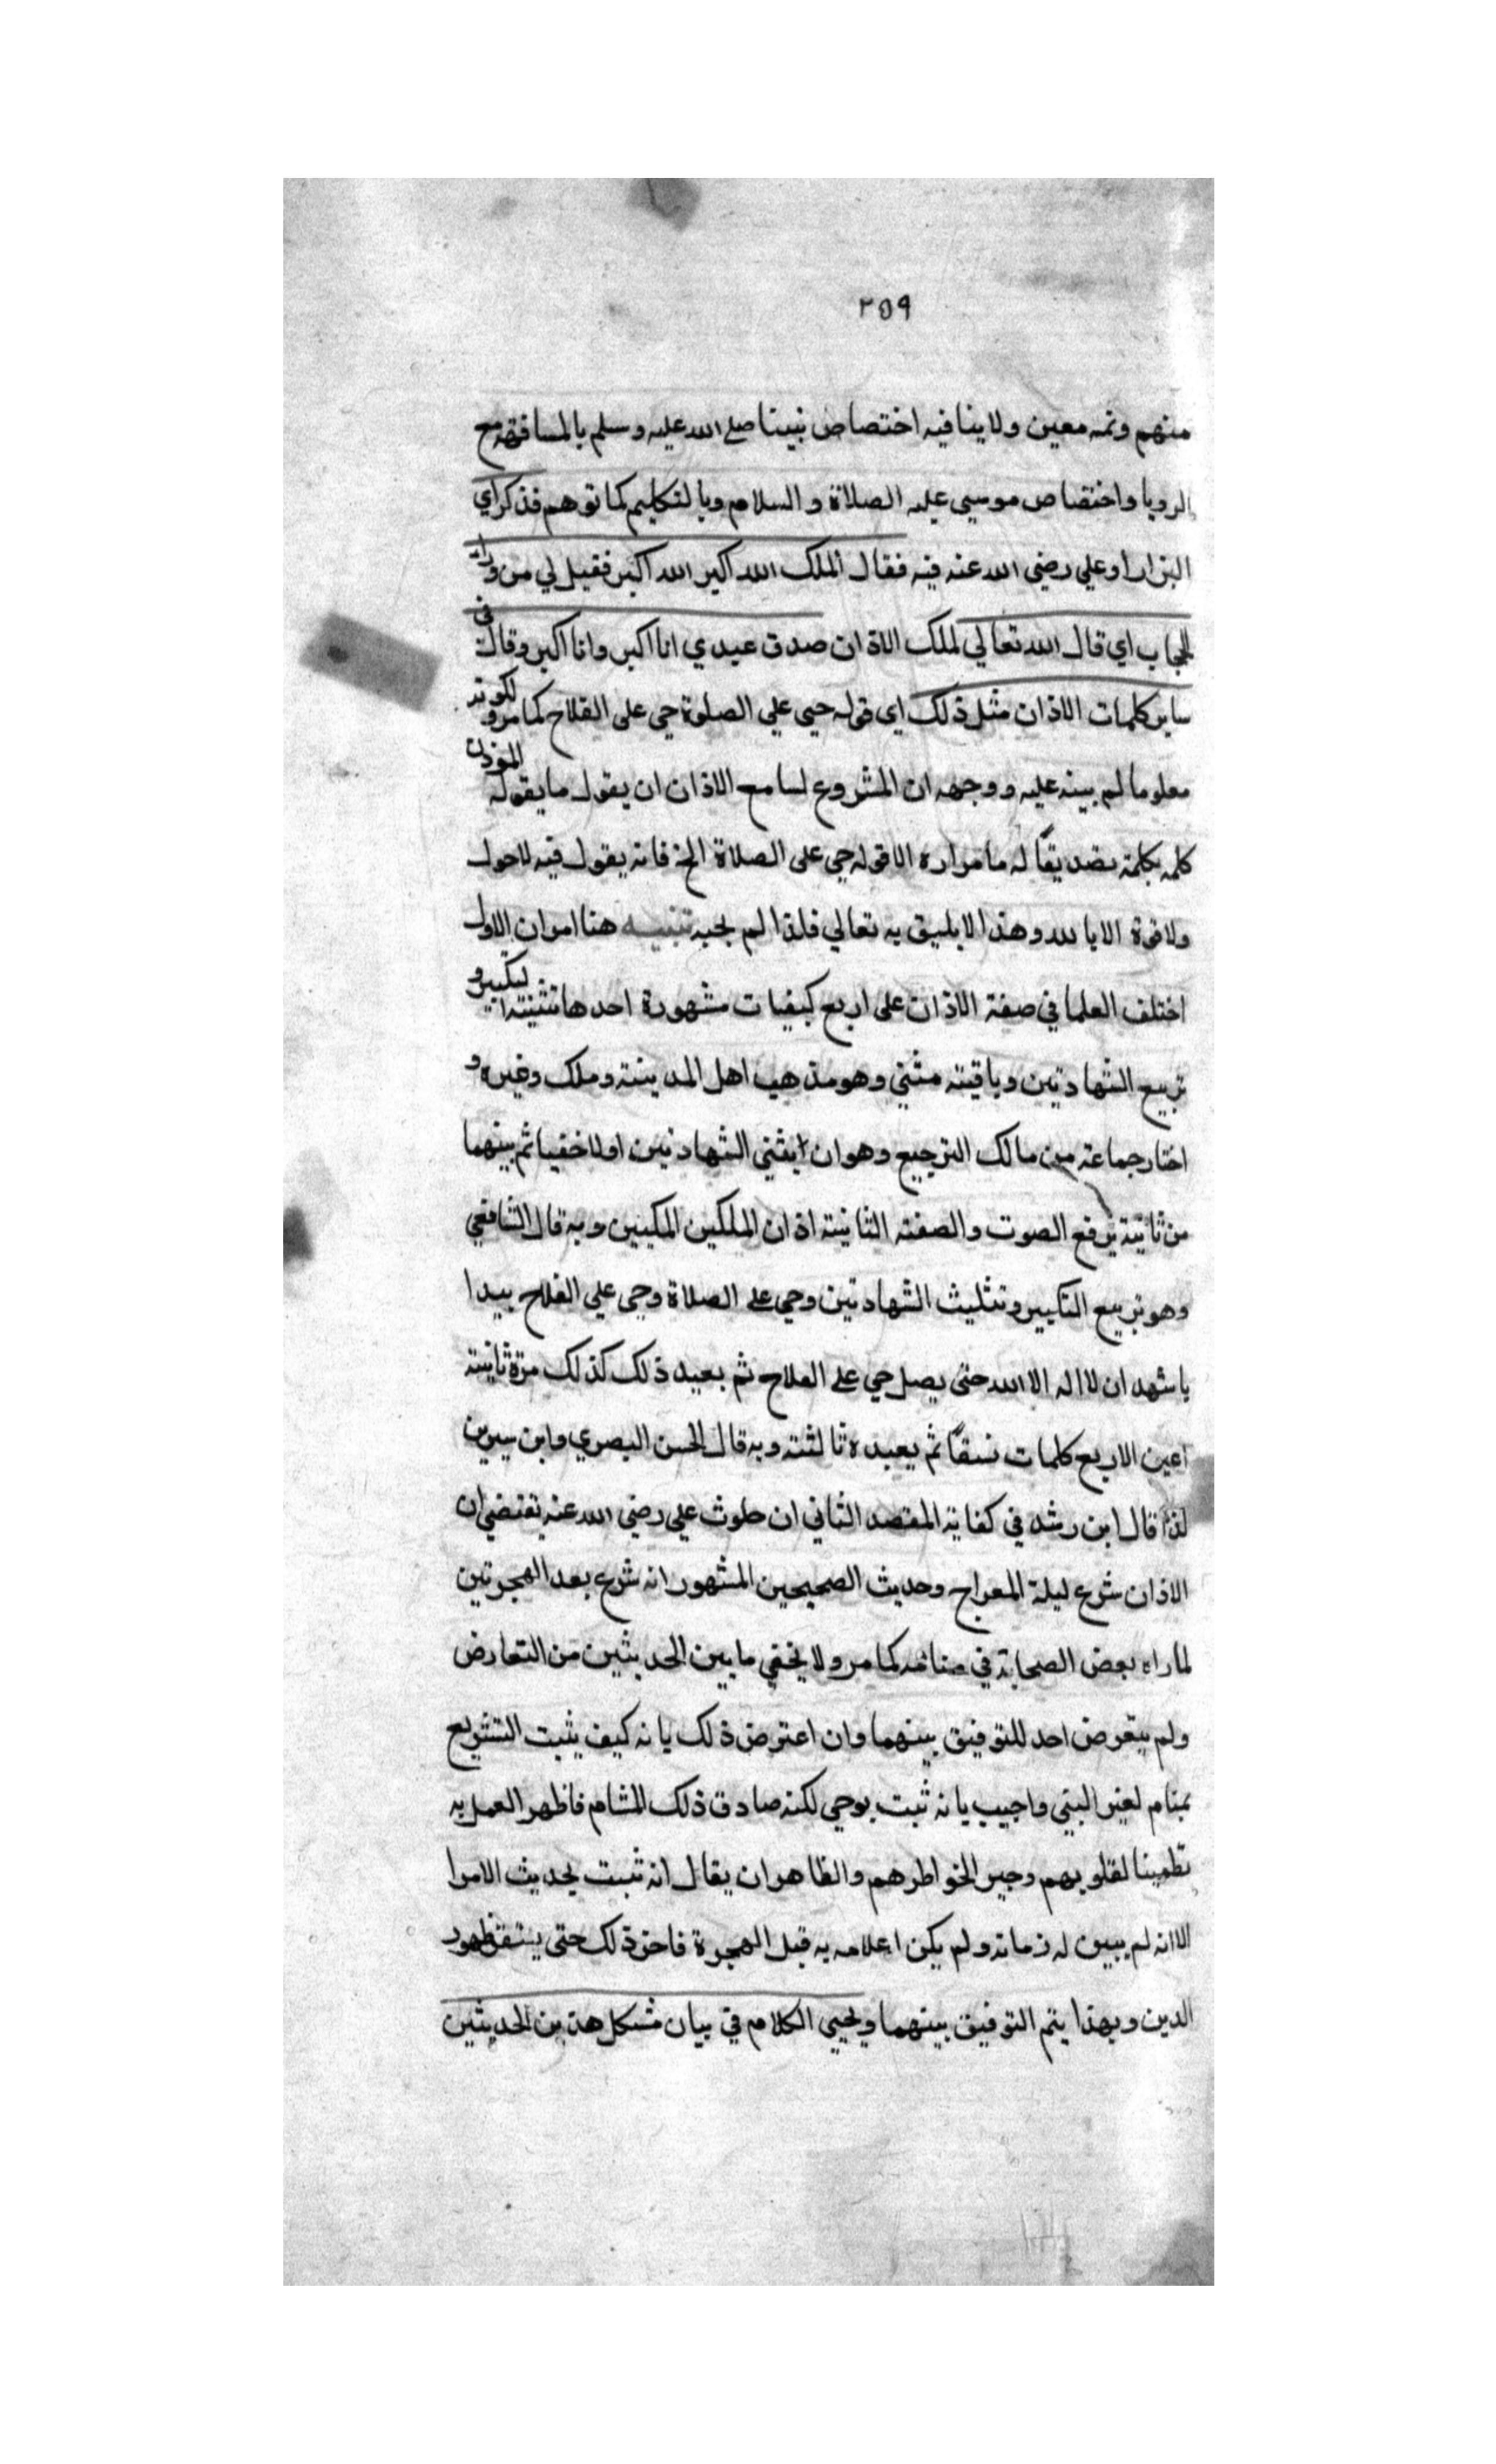 ٢٥٩
منهم وثمه معين ولاينافيه اختصاص نبينا صلى الله عليه وسلم بالمسافهة مع
الرويا واختصاص موسى عليه الصلاة والسلام وبالتكليم كما توهم فذكر اي
البزار او علي رضي الله عنه فيه فقال الملك الله اكبر الله اكبر فقيل لي من وراء
الحجاب اي قال الله تعالي لملك الاذان صدق عبدي انا اكبر وانا اكبر وقال في
ساير كلمات الاذان مثل ذلك اي قوله حيى علي الصلوة حي على الفلاح كما مر ولكونه
معلوما لم يبينه عليه ووجهه ان المشروع لسامع الاذان ان يقول ما يقوله المؤذن
كلمه بكلمة تصديقًا له ما قرارة الاقوله حي على الصلاة الخ فانه يقول فيه لاحول
ولاقوة الا بالله وهذا لايليق به تعالي فلذا لم يجبه تنبيه هنا امران الاول
اختلف العلما في صفة الاذان على اربع كيفيات مشهورة احدها تثنيته التكبير و
تربيع الشهادتين وباقيته مثني وهو مذهب اهل المدينة وملك وغيره و
اختار جماعة من مالك الترجيع وهو ان يثني الشهادتين اولا خفيا ثم يثنهما
من ثانية يرفع الصوت والصفته الثانية اذان الملكين المكيين وبه قال الشافعي
وهو تربيع التكبير وتثليث الشهادتين وحي على الصلاة وحي علي الفلاح يبدا
باشهد ان لا اله الا الله حتى يصل حي على الفلاح ثم يعيد ذلك كذلك مرة ثانية
اعين الاربع كلمات نسقًا ثم يعيده ثالثته وبه قال الحسن البصري وابن سيرين
لذا قال ابن رشد في كفاية المقصد الثاني ان حلوث علي رضي الله عنه تقتضي ان
الاذان شرع ليلة المعراج وحديث الصحيحين المشهور انه شرع بعد الهجرتين
لما راه بعض الصحابة في منامه كما مر ولا يخفي ما بين الحديثين من التعارض
ولم يتعرض احد للتوفيق بينهما وان اعترض ذلك بانه كيف يثبت التشريع
بمنام لغير النبي واجيب بانه ثبت بوحي لكنه صادق ذلك المشام فاظهر العمل به
تطمينا لقلوبهم وجبر الخواطرهم والظاهر ان يقال انه ثبت بحديث الاسرا
الا انه لم يبين له زمانه ولم يكن اعلامه به قبل الهجرة فاخر ذلك حتى يستقر ظهور
الدين وبهذا يتم التوفيق بينهما ويحيى الكلام في بيان مشكل هذين الحديثين